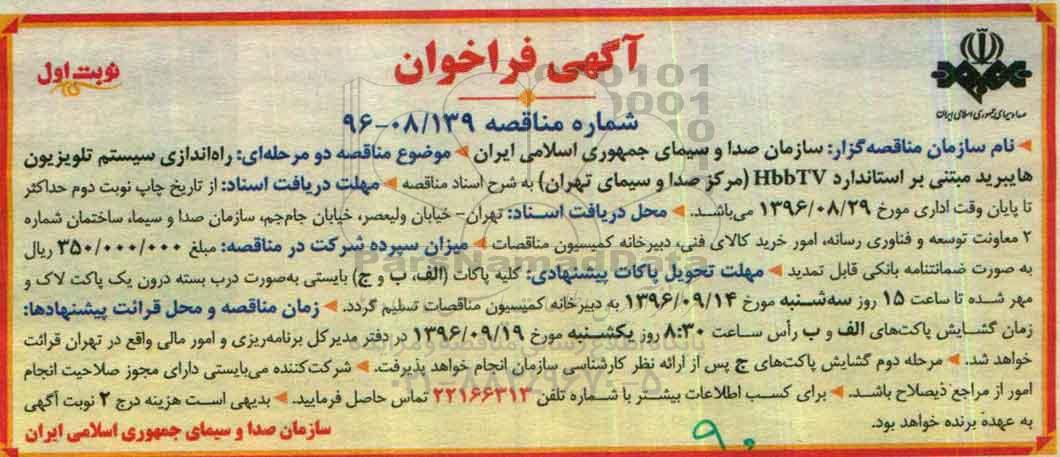 آگهی فراخوان
نوبت اول
صدا و سیمای جمهوری اسلامی ایران
شماره مناقصه ۹۶-۰۸/۱۳۹
نام سازمان مناقصه‌گزار: سازمان صدا و سیمای جمهوری اسلامی ایران موضوع مناقصه دو مرحله‌ای: راه‌اندازی سیستم تلویزیون
هایبرید مبتنی بر استاندارد HbbTV (مرکز صدا و سیمای تهران) به شرح اسناد مناقصه مهلت دریافت اسناد: از تاریخ چاپ نوبت دوم حداکثر
تا پایان وقت اداری مورخ ۱۳۹۶/۰۸/۲۹ می‌باشد. محل دریافت اسناد: تهران- خیابان ولیعصر، خیابان جام‌جم، سازمان صدا و سیما، ساختمان شماره
۲ معاونت توسعه و فناوری رسانه، امور خرید کالای فنی، دبیرخانه کمیسیون مناقصات میزان سپرده شرکت در مناقصه: مبلغ ۳۵۰/۰۰۰/۰۰۰ ریال
به صورت ضمانتنامه بانکی قابل تمدید مهلت تحویل پاکات پیشنهادی: کلیه پاکات (الف، ب و ج) بایستی به‌صورت درب بسته درون یک پاکت لاک و
مهر شده تا ساعت ۱۵ روز سه‌شنبه مورخ ۱۳۹۶/۰۹/۱۴ به دبیرخانه کمیسیون مناقصات تسلیم گردد. زمان مناقصه و محل قرائت پیشنهادها:
زمان گشایش پاکت‌های الف و ب رأس ساعت ۸:۳۰ روز یکشنبه مورخ ۱۳۹۶/۰۹/۱۹ در دفتر مدیرکل برنامه‌ریزی و امور مالی واقع در تهران قرائت
خواهد شد. مرحله دوم گشایش پاکت‌های ج پس از ارائه نظر کارشناسی سازمان انجام خواهد پذیرفت. شرکت‌کننده می‌بایستی دارای مجوز صلاحیت انجام
امور از مراجع ذیصلاح باشد. برای کسب اطلاعات بیشتر با شماره تلفن ۲۲۱۶۶۳۱۳ تماس حاصل فرمایید. بدیهی است هزینه درج ۲ نوبت آگهی
به عهده برنده خواهد بود.
سازمان صدا و سیمای جمهوری اسلامی ایران
۹۰
ParsNamadData